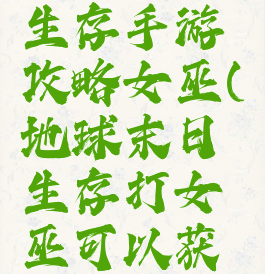 生存手游
攻略女巫(
地球末日
生存打女
巫可以获